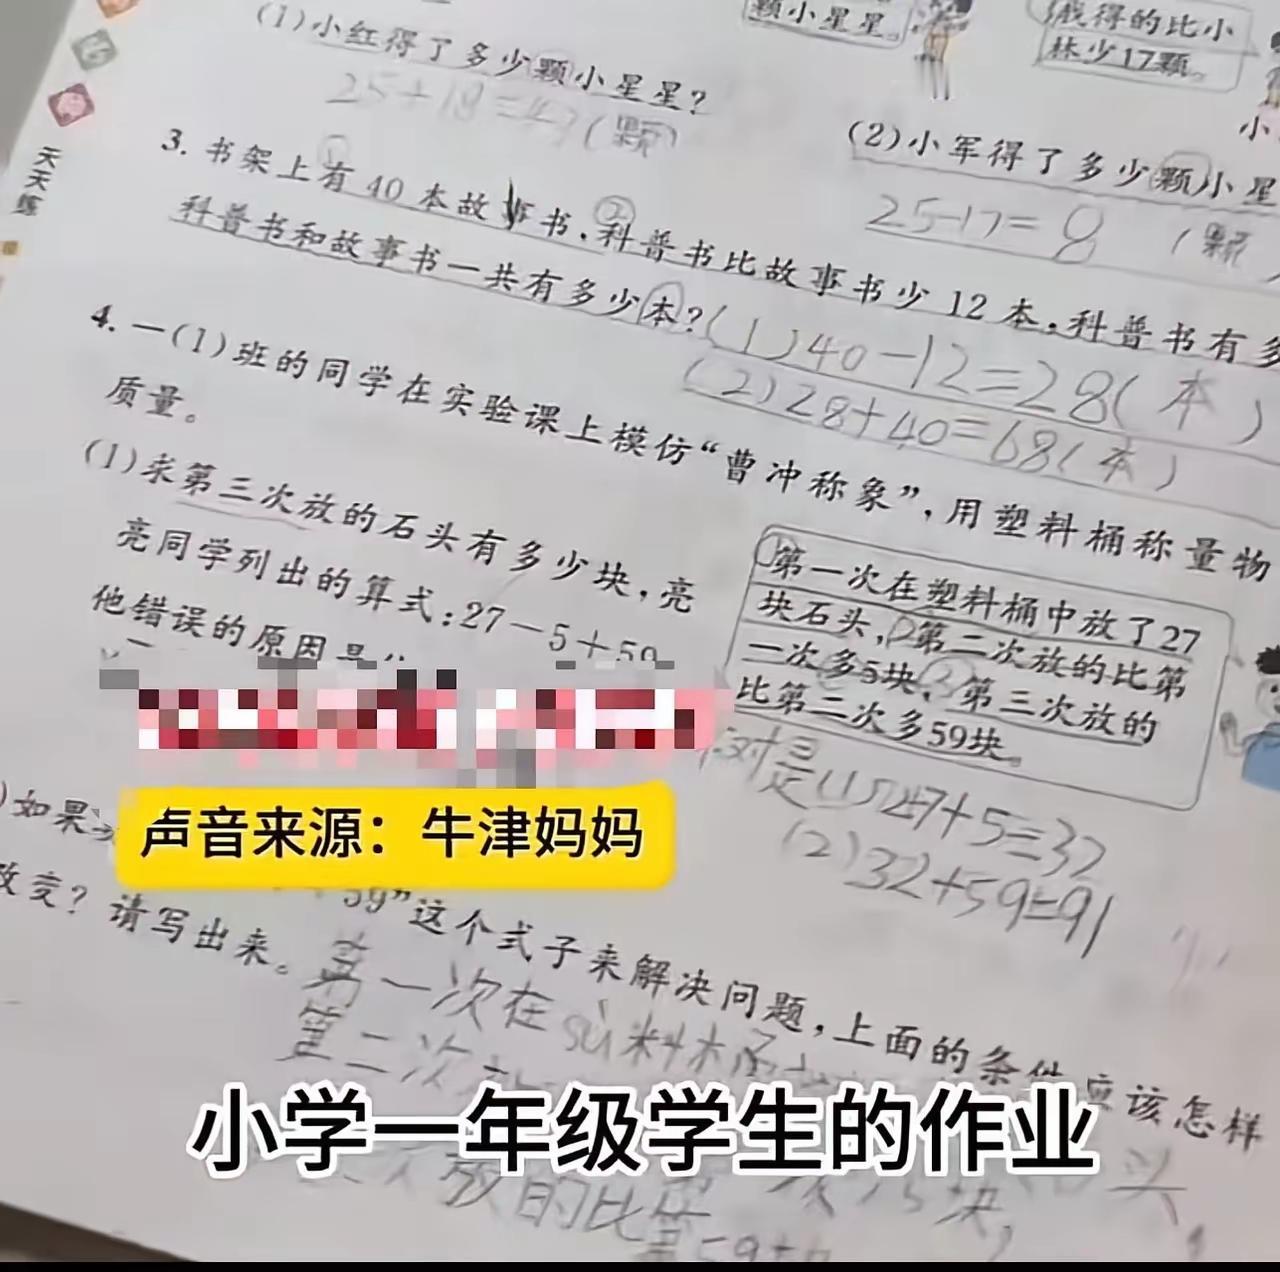 (1)小红得了多少颗小星星?
25+18=43(颗)
颗小星星。
我得的比小
林少17颗。
小
(2)小军得了多少颗小星
25-17=8 (颗
天天练
3. 书架上有40本故事书,科普书比故事书少12本,科普书有多
科普书和故事书一共有多少本?
(1)40-12=28(本)
(2)28+40=68(本)
4. 一(1)班的同学在实验课上模仿“曹冲称象”,用塑料桶称量物
质量。
(1)求第三次放的石头有多少块,亮
亮同学列出的算式:27-5+59
他错误的原因是
①第一次在塑料桶中放了27
块石头,②第二次放的比第
一次多5块,③第三次放的
比第二次多59块。
对是(1)27+5=32
(2)32+59=91
声音来源：牛津妈妈
)如果
59”这个式子来解决问题,上面的条件应该怎样
改变?请写出来。
第一次在sù料桶
第二次
小学一年级学生的作业
放的比第
块,
头,